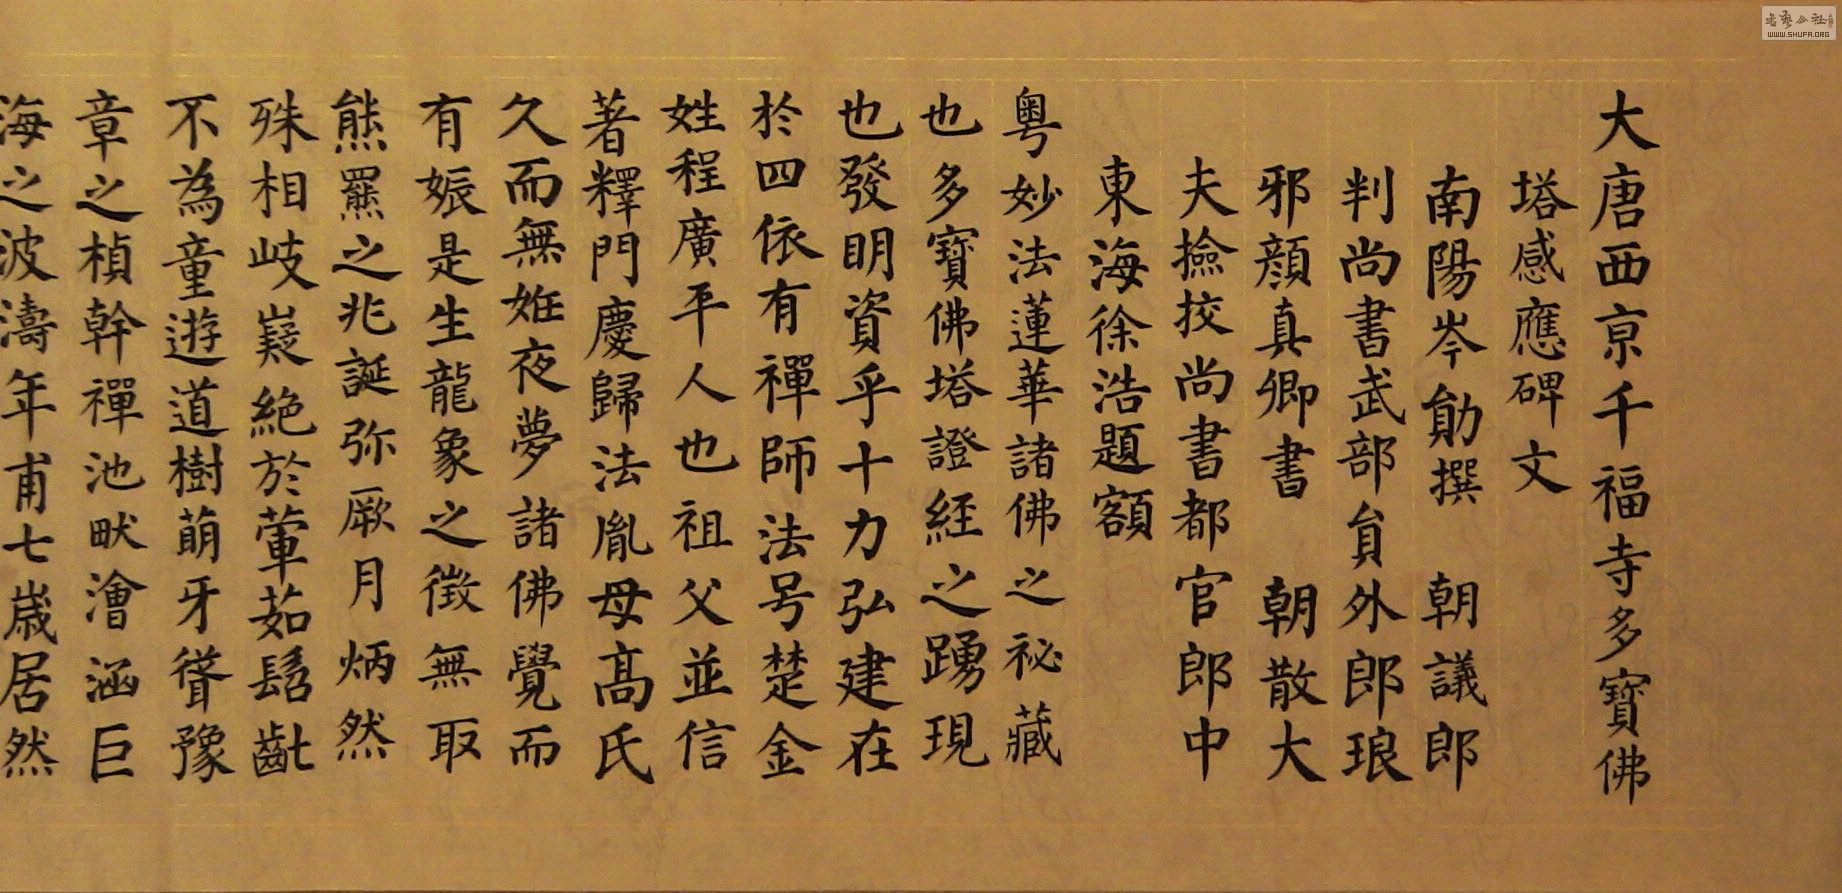 大唐西京千福寺多寶佛
塔感應碑文
南陽岑勛撰 朝議郎
判尚書武部員外郎琅
邪顏真卿書 朝散大
夫撿挍尚書都官郎中
東海徐浩題額
粵妙法蓮華諸佛之祕藏
也多寶佛塔證經之踴現
也發明資乎十力弘建在
於四依有禪師法号楚金
姓程廣平人也祖父並信
著釋門慶歸法胤母高氏
久而無姙夜夢諸佛覺而
有娠是生龍象之徵無取
熊羆之兆誕弥厥月炳然
殊相岐嶷絕於葷茹髫齔
不為童遊道樹萌牙聳豫
章之楨幹禪池畎澮涵巨
海之波濤年甫七歲居然
WWW.SHUFA.ORG